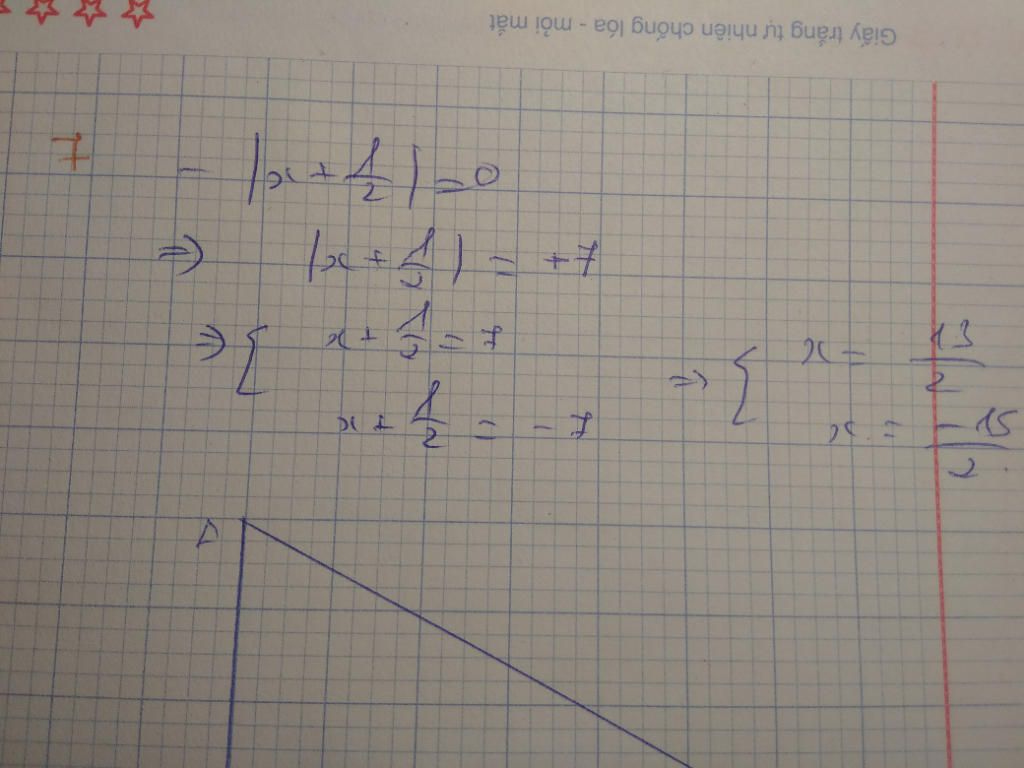 Giấy trắng tự nhiên chống lóa - mỏi mắt
7 - |x + 1/2| = 0
=> |x + 1/2| = +7
=> { x + 1/2 = 7
x + 1/2 = -7
=> { x = 13/2
x = -15/2
A